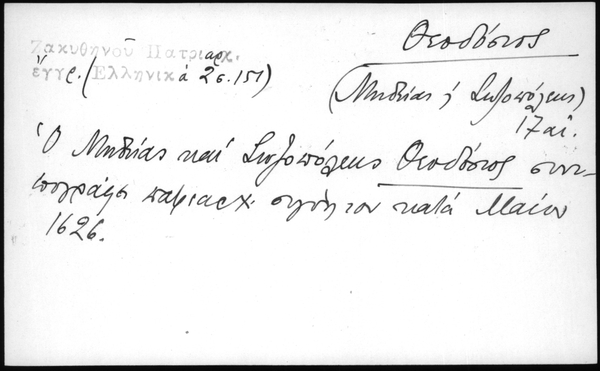 Ζακυθηνοῦ Πατριαρχ.
ἔγγρ. (Ἑλληνικά 2 σ. 151)
Θεοδόσιος
(Μηδείας ἤ Σωζοπόλεως)
17 αἰ.
Ὁ Μηδείας καί Σωζοπόλεως Θεοδόσιος συνυ-
πογράφει πατριαρχ. σιγίλλιον κατά Μαΐου
1626.